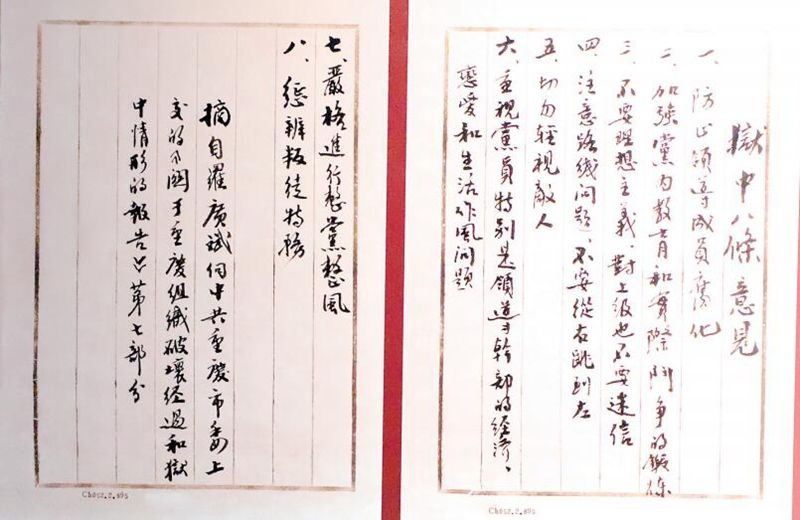 獄中八條意見
一、防止領導成員腐化
二、加強黨内教育和實際鬥争的鍛煉
三、不要理想主義、對上級也不要迷信
四、注意路线问题、不要從右跳到左
五、切勿輕視敵人
六、重視黨員特别是領導幹部的經濟、
戀愛和生活作風问題
七、嚴格進行整黨整風
八、懲辦叛徒特務
摘自羅廣斌向中共重慶市委上
交的《関于重慶組織破壞经過和獄
中情形的報告》第七部分